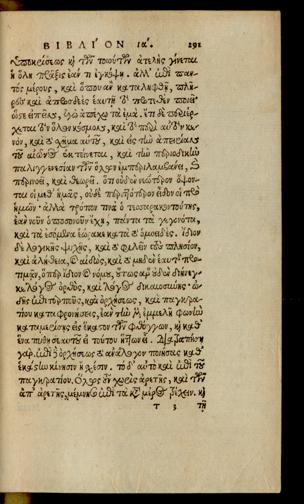 ΒΙΒΛΙ´ΟΝ ια´. 291
ὑποκρίσεως καὶ τῶν τοιούτων ἀτελὴς γίνεται
ἡ ὅλη πρᾶξις ἐάν τι ἐγκόψῃ. ἀλλ' ἐπὶ παν-
τὸς μέρους, καὶ ὅπου ἂν καταληφθῇ, πλῆ-
ρες καὶ ἀπροσδεὲς ἑαυτῇ τὸ προτεθὲν ποιεῖ
ὥστε εἰπεῖν, ἐγὼ ἀπέχω τὰ ἐμά. ἔτι δὲ περιέρ-
χεται τὸν ὅλον κόσμον, καὶ τὸ περὶ αὐτὸν κε-
νὸν, καὶ τὸ σχῆμα αὐτοῦ, καὶ εἰς τὴν ἀπειρίαν
τοῦ αἰῶνος ἐκτείνεται, καὶ τὴν περιοδικὴν
παλιγγενεσίαν τῶν ὅλων ἐμπεριλαμβάνει, καὶ
περινοεῖ, καὶ θεωρεῖ. ὅτι οὐδὲν νεώτερον ὄψον-
ται οἱ μεθ' ἡμᾶς, οὐδὲ περιττότερον εἶδον οἱ πρὸ
ἡμῶν· ἀλλὰ τρόπον τινὰ ὁ τεσσαρακοντούτης,
ἐὰν νοῦν ὁποσονοῦν ἔχῃ, πάντα τὰ γεγονότα,
καὶ τὰ ἐσόμενα ἑώρακε κατὰ τὸ ὁμοειδές. ἴδιον
δὲ λογικῆς ψυχῆς, καὶ τὸ φιλεῖν τοὺς πλησίον,
καὶ ἀλήθεια, καὶ αἰδὼς, καὶ τὸ μηδὲν ἑαυτῆς προ-
τιμᾶν, ὅπερ ἴδιον καὶ νόμου, οὕτως ἄρ' οὐδὲν διήνεγ-
κε λόγος ὀρθὸς, καὶ λόγος δικαιοσύνης. ᾠ-
δῆς ἐπιτερποῦς, καὶ ὀρχήσεως, καὶ παγκρα-
τίου καταφρονήσεις, ἐὰν τὴν μὲν ἐμμελῆ φωνὴν
καταμερίσῃς εἰς ἕκαστον τῶν φθόγγων, καὶ καθ'
ἕνα πύθῃ σεαυτοῦ εἰ τούτου ἥττων εἶ. διατραπήσῃ
γάρ. ἐπὶ δὲ ὀρχήσεως τὸ ἀνάλογον ποιήσας καθ'
ἑκάστην κίνησιν ἢ σχέσιν. τὸ δ' αὐτὸ καὶ ἐπὶ τοῦ
παγκρατίου. ὅλως οὖν χωρὶς ἀρετῆς, καὶ τῶν
ἀπ' ἀρετῆς, μέμνησο ἐπὶ τὰ κατὰ μέρος τρέχειν. καὶ
T 3 τῇ